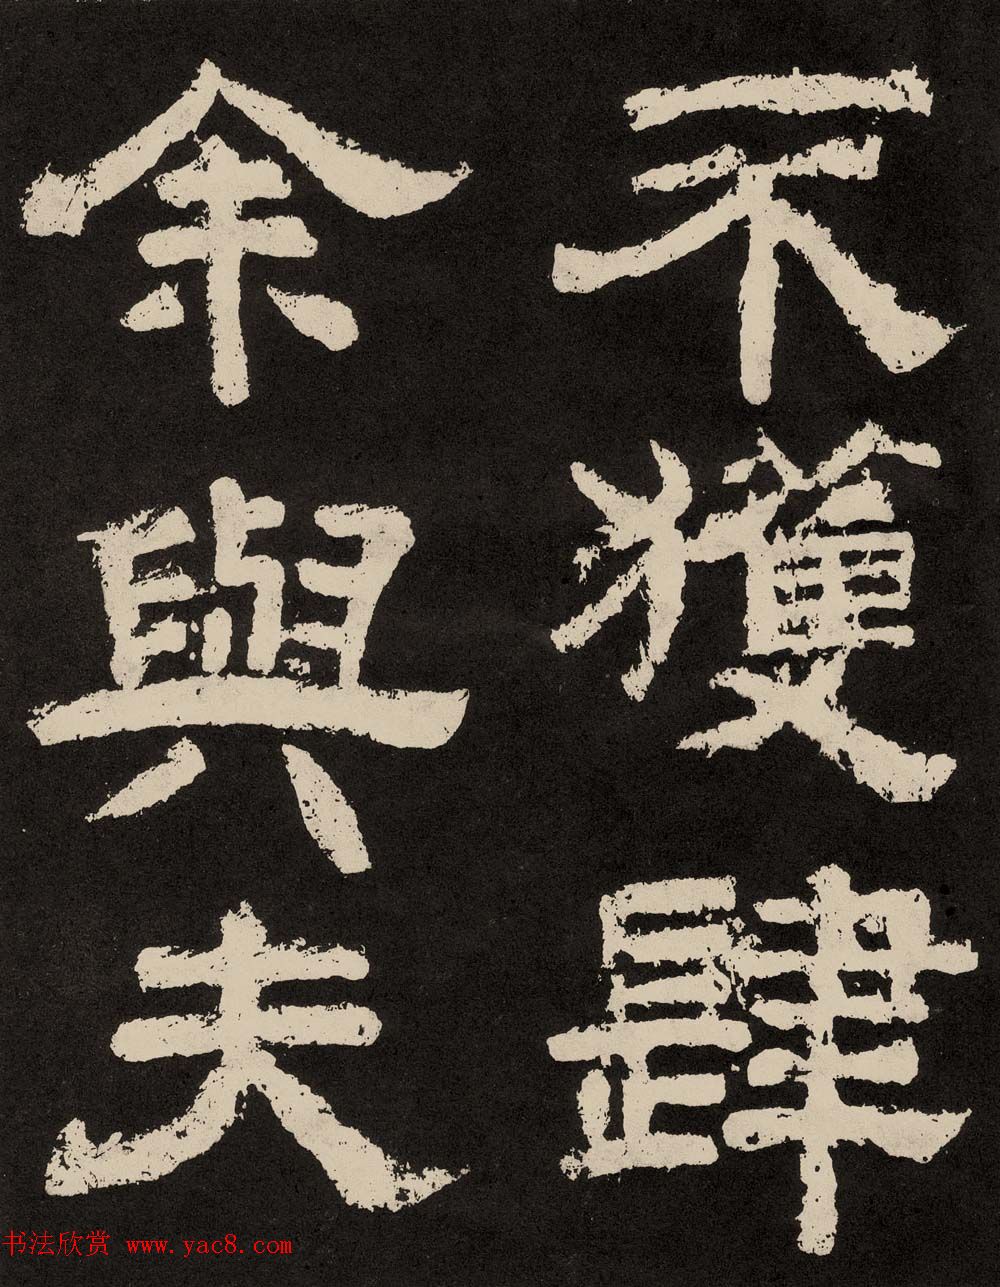 不獲肆
余與夫
书法欣赏 www.yac8.com